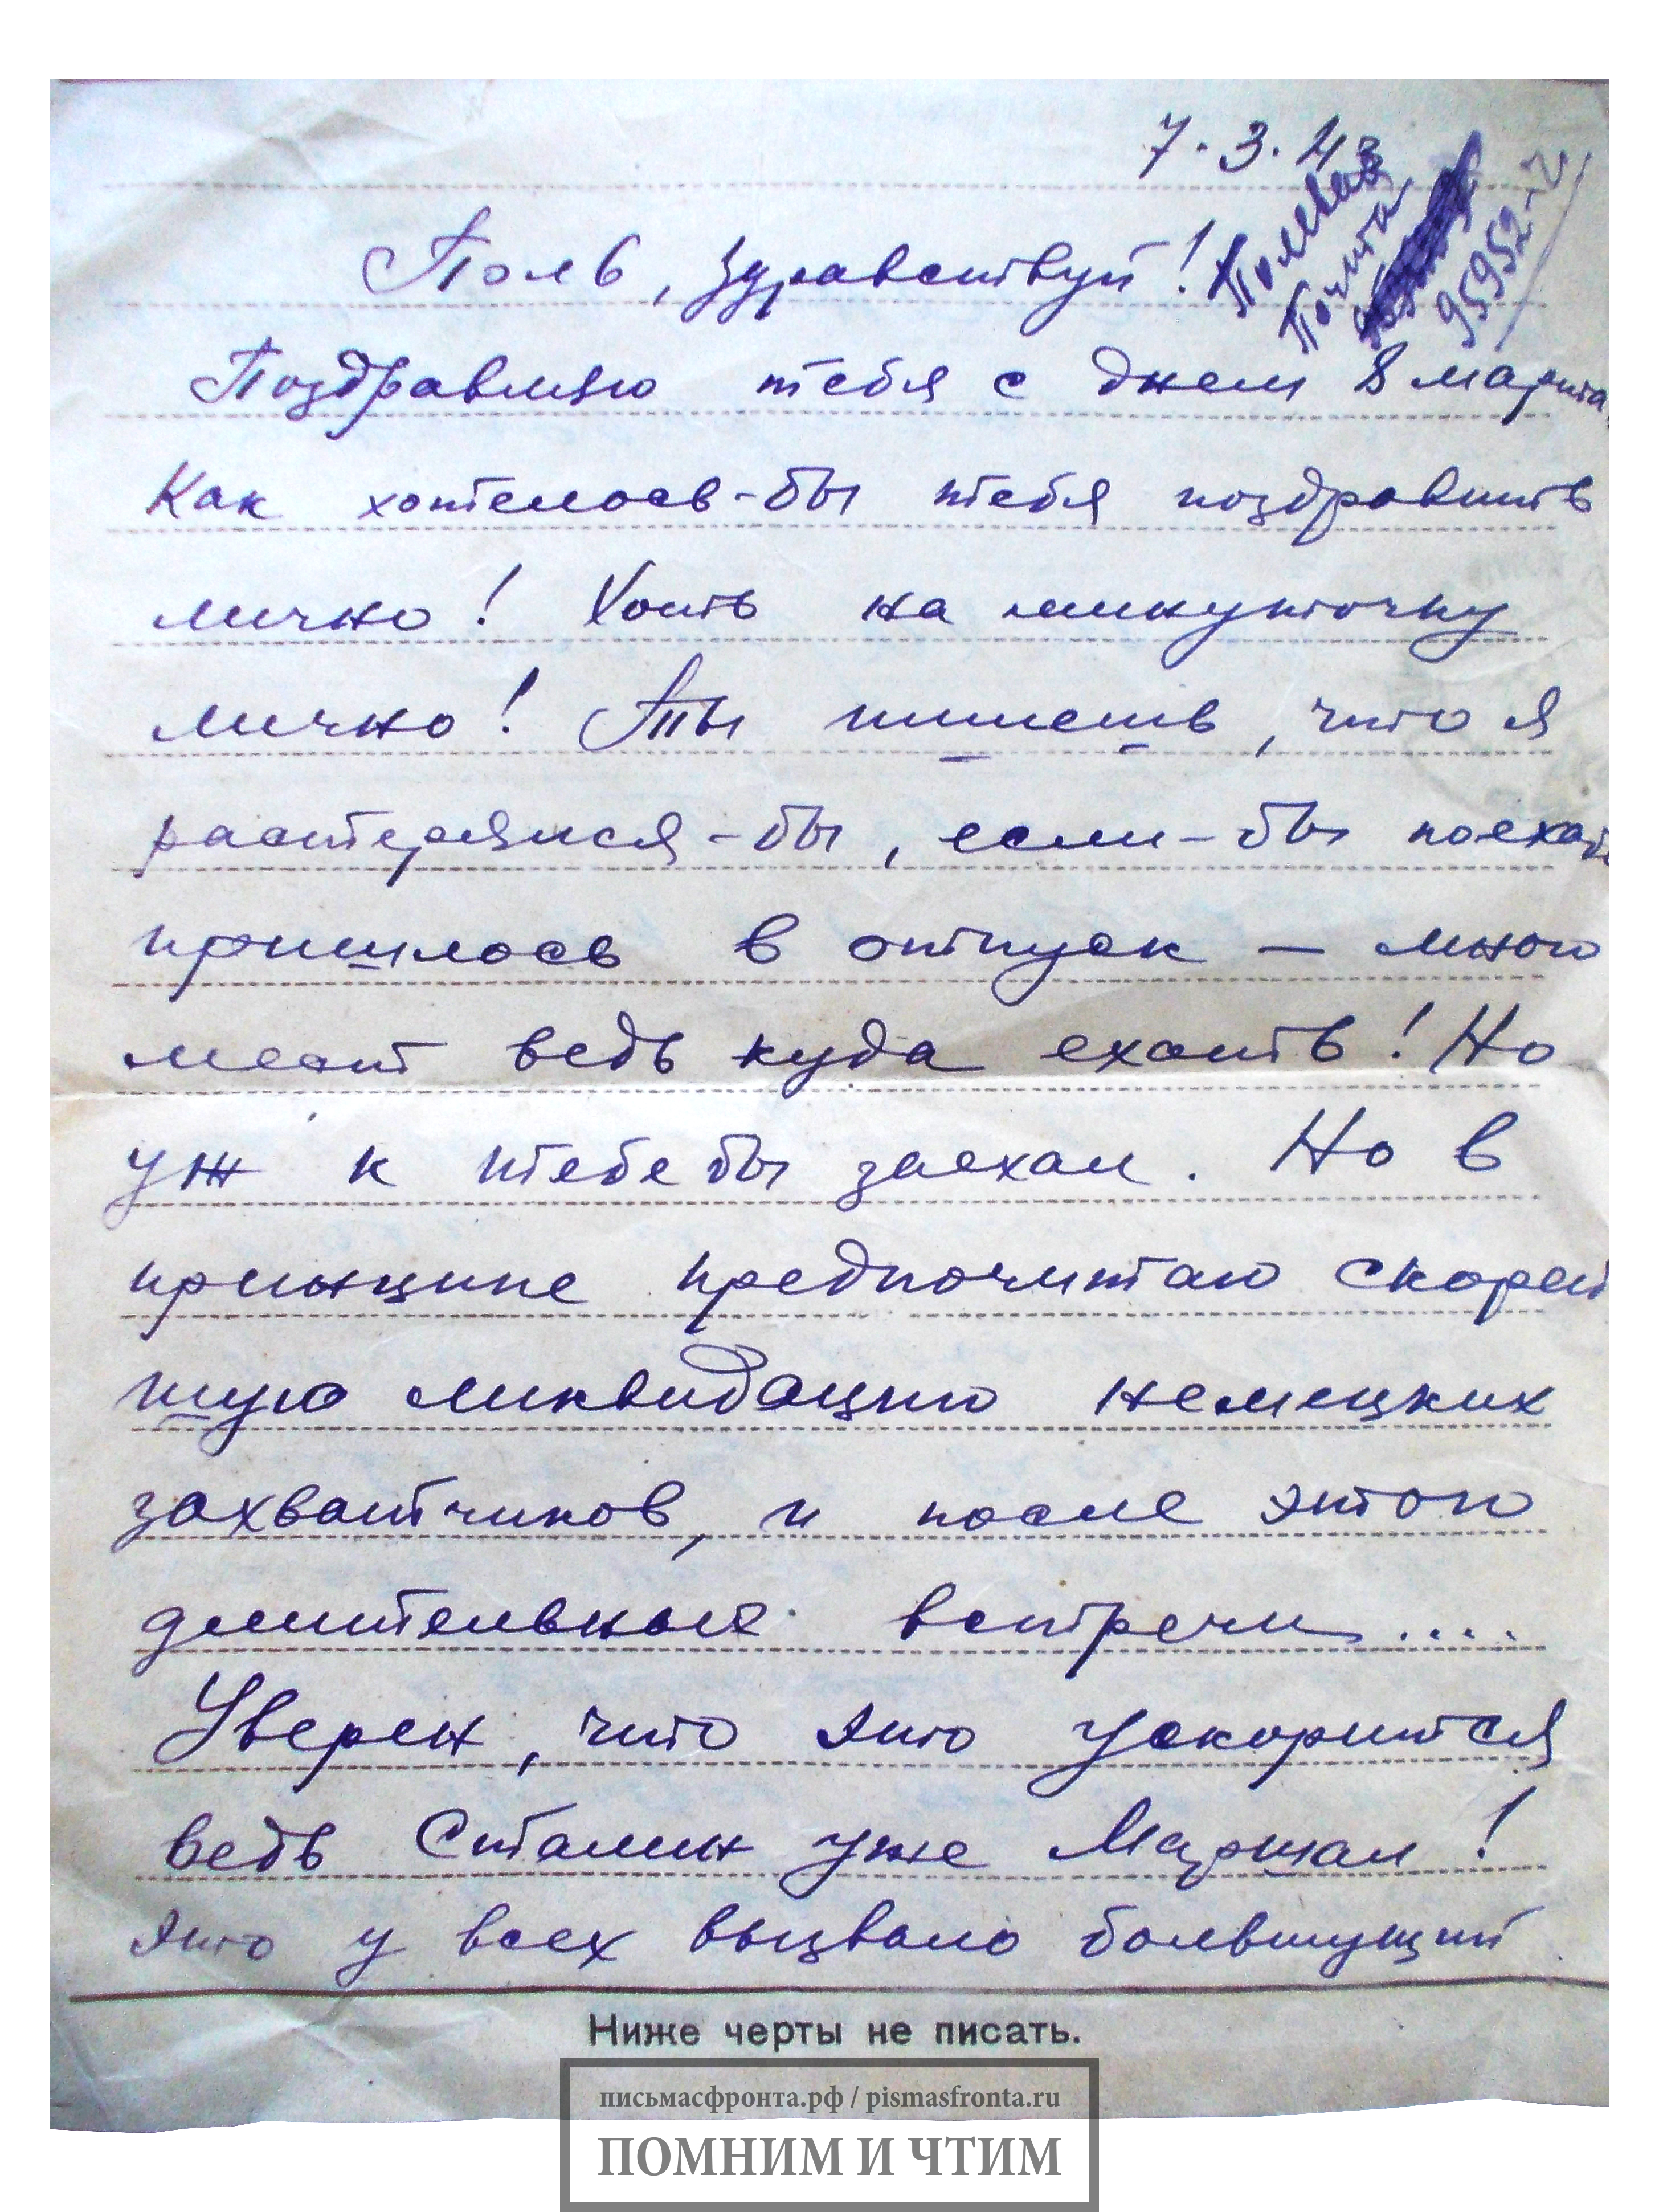 7.3.43
Полевая
Почта
95952-Ч
Поль, здравствуй!
Поздравляю тебя с днем 8 марта,
Как хотелось-бы тебя поздравить
лично! Хоть на минуточку
лично! Ты пишешь, что я
растерялся-бы, если-бы поехать
пришлось в отпуск — много
мест ведь куда ехать! Но
уж к тебе бы заехал. Но в
принципе предпочитаю скорей
шую ликвидацию немецких
захватчиков, и после этого
длительные встречи....
Уверен, что это ускорится
ведь Сталин уже Маршал!
Это у всех вызвало большущий
Ниже черты не писать.
письмасфронта.рф / pismasfronta.ru
ПОМНИМ И ЧТИМ